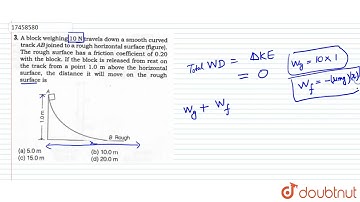 17458580
3. A block weighing 10 N travels down a smooth curved
track AB joined to a rough horizontal surface (figure).
The rough surface has a friction coefficient of 0.20
with the block. If the block is released from rest
on the track from a point 1.0 m above the horizontal
surface, the distance it will move on the rough
surface is
A
1.0 m
B Rough
(a) 5.0 m
(b) 10.0 m
(c) 15.0 m
(d) 20.0 m
Total WD = ΔKE
= 0
Wg = 10 × 1
Wf = -(μmg)(x)
Wg + Wf
doubtnut